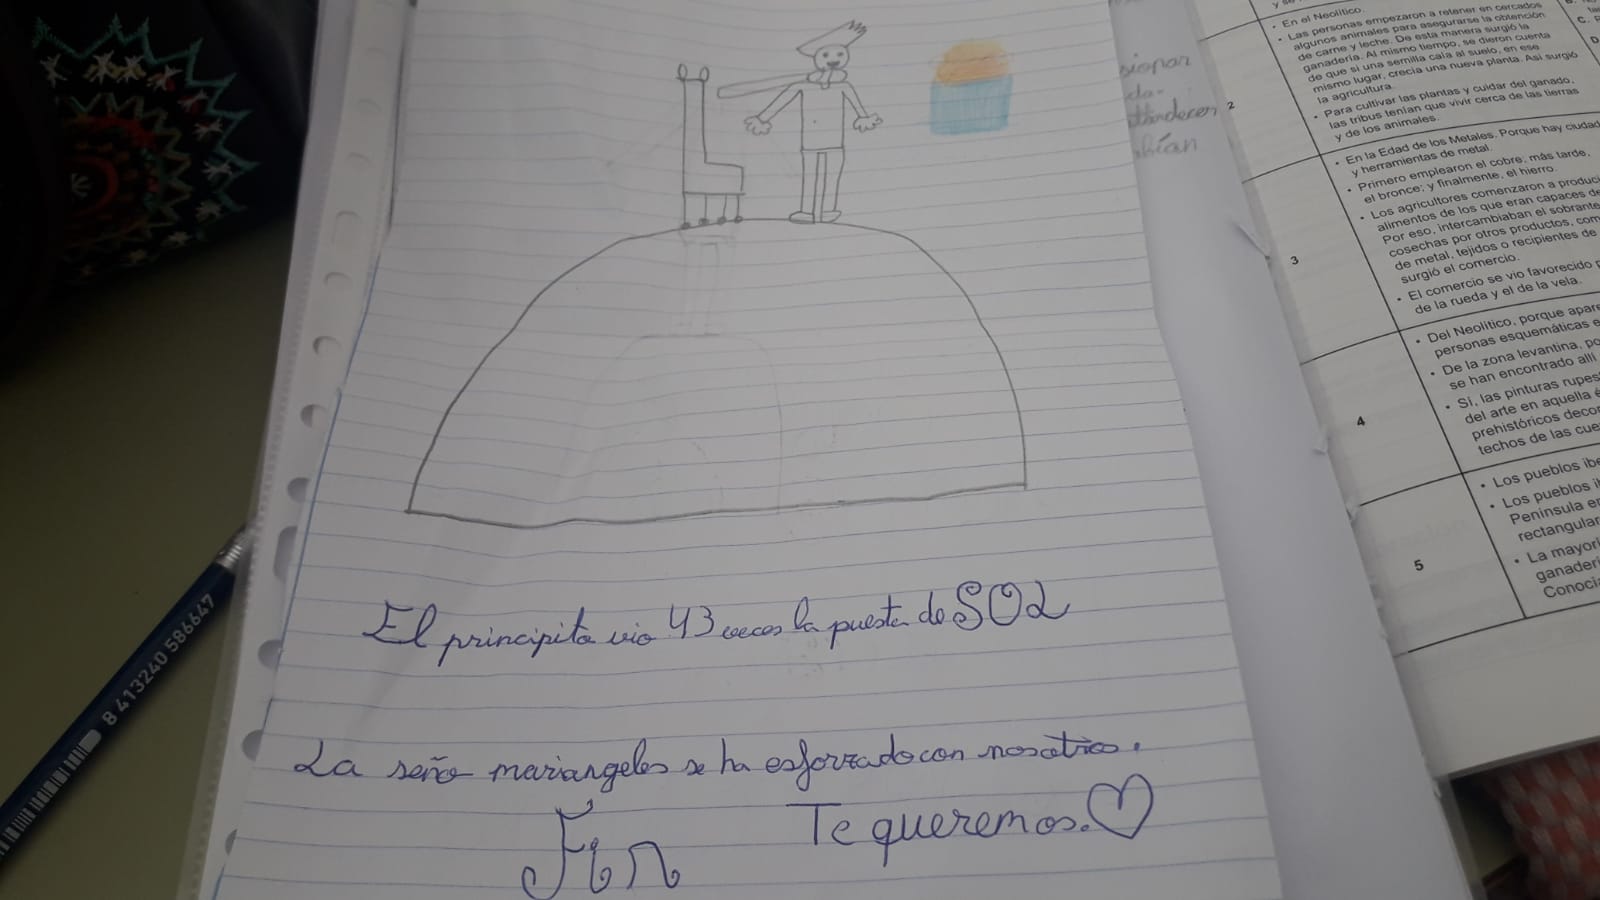 El principito vio 43 veces la puesta de SOL
La seño mariangeles se ha esforzado con nosotros.
Te queremos.
Fin
8 413240 586647
sionar
da-
andecen
bían
2
En el Neolítico.
Las personas empezaron a retener en cercados
algunos animales para asegurarse la obtención
de carne y leche. De esta manera surgió la
ganadería. Al mismo tiempo, se dieron cuenta
de que si una semilla caía al suelo, en ese
mismo lugar, crecía una nueva planta. Así surgió
la agricultura.
Para cultivar las plantas y cuidar del ganado,
las tribus tenían que vivir cerca de las tierras
y de los animales.
3
En la Edad de los Metales. Porque hay ciudad
y herramientas de metal.
Primero emplearon el cobre; más tarde,
el bronce; y finalmente, el hierro.
Los agricultores comenzaron a produci
alimentos de los que eran capaces de
Por eso, intercambiaban el sobrante
cosechas por otros productos, com
de metal, tejidos o recipientes de
surgió el comercio.
El comercio se vio favorecido p
de la rueda y el de la vela.
4
Del Neolítico, porque apare
personas esquemáticas e
De la zona levantina, po
se han encontrado allí
Sí, las pinturas rupes
del arte en aquella é
prehistóricos decor
techos de las cue
5
Los pueblos ibe
Los pueblos i
Península e
rectangular
La mayorí
ganaderí
Conocía